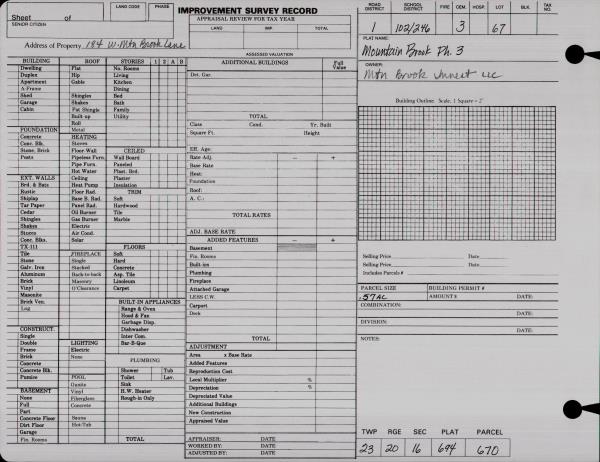 IMPROVEMENT SURVEY RECORD
Sheet of
SENIOR CITIZEN
LAND CODE
PHASE
APPRAISAL REVIEW FOR TAX YEAR
LAND IMP. TOTAL
ASSESSED VALUATION
Address of Property 184 W. Mtn Brook Lane
ROAD DISTRICT SCHOOL DISTRICT FIRE CEM. HOSP. LOT BLK. TAX NO.
1 102/246 3 67
PLAT NAME:
Mountain Brook Ph. 3
OWNER:
Mtn Brook Invest LLC
Building Outline Scale, 1 Square = 2'
BUILDING
Dwelling
Duplex
Apartment
A-Frame
Shed
Garage
Cabin
FOUNDATION
Concrete
Conc. Blk.
Stone, Brick
Posts
EXT. WALLS
Brd. & Bats
Rustic
Shiplap
Tar Paper
Cedar
Shingles
Shakes
Stucco
Conc. Blks.
TX-111
Tile
Stone
Galv. Iron
Aluminum
Brick
Vinyl
Masonite
Brick Ven.
Log
CONSTRUCT.
Single
Double
Frame
Brick
Concrete
Concrete Blk.
Pumice
BASEMENT
None
Full
Part
Concrete Floor
Dirt Floor
Garage
Fin. Rooms
ROOF
Flat
Hip
Gable
Shingles
Shakes
Pat Shingle
Built-up
Roll
Metal
HEATING
Stoves
Floor Wall
Pipeless Furn.
Pipe Furn.
Hot Water
Ceiling
Heat Pump
Floor Rad.
Base B. Rad.
Panel Rad.
Oil Burner
Gas Burner
Electric
Air Cond.
Solar
FIREPLACE
Single
Stacked
Back-to-back
Masonry
O'Clearance
LIGHTING
Electric
None
POOL
Gunite
Vinyl
Fiberglass
Concrete
Sauna
Hot-Tub
STORIES 1 2 A B
No. Rooms
Living
Kitchen
Dining
Bed
Bath
Family
Utility
CEILED
Wall Board
Paneled
Plast. Brd.
Plaster
Insulation
TRIM
Soft
Hardwood
Tile
Marble
FLOORS
Soft
Hard
Concrete
Asp. Tile
Linoleum
Carpet
BUILT-IN APPLIANCES
Range & Oven
Hood & Fan
Garbage Disp.
Dishwasher
Inter Com.
Bar-B-Que
PLUMBING
Shower Tub
Toilet Lav.
Sink
H.W. Heater
Rough-in Only
TOTAL
ADDITIONAL BUILDINGS Full Value
Det. Gar.
TOTAL
Class Cond. Yr. Built
Square Ft. Height
Eff. Age:
Rate Adj. - +
Base Rate
Heat:
Foundation
Roof:
A. C.:
TOTAL RATES
ADJ. BASE RATE
ADDED FEATURES - +
Basement
Fin. Rooms
Built-ins
Plumbing
Fireplace
Attached Garage
LESS C.W.
Carport
Deck
TOTAL
ADJUSTMENT
Area x Base Rate
Added Features
Reproduction Cost
Local Multiplier %
Depreciation %
Depreciated Value
Additional Buildings
New Construction
Appraised Value
APPRAISER: DATE
WORKED BY: DATE
ADJUSTED BY: DATE
Selling Price Date
Selling Price Date
Includes Parcels #
PARCEL SIZE BUILDING PERMIT #
.57AC AMOUNT $ DATE:
COMBINATION:
DATE:
DIVISION:
DATE:
NOTES:
TWP RGE SEC PLAT PARCEL
23 20 16 694 670